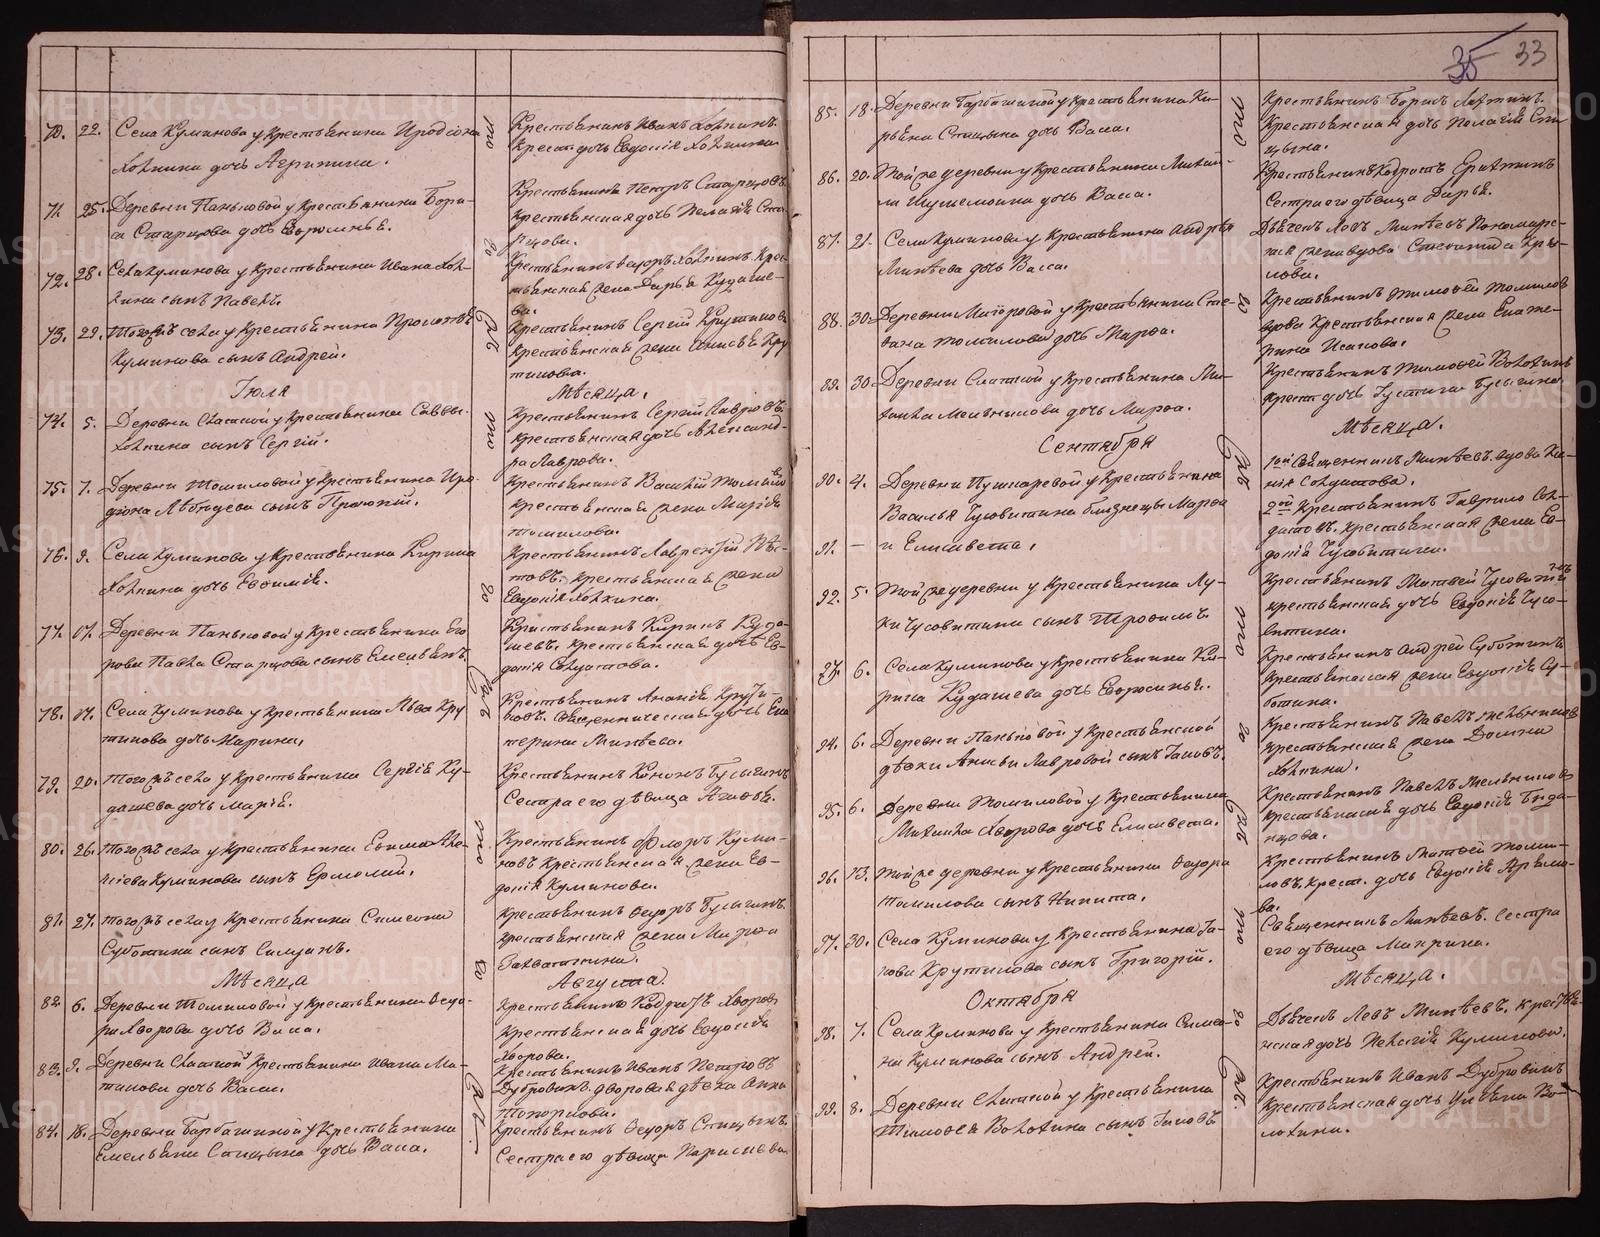 35 33
70. 22. Села Куминова у крестьянина Иродіона
Холкина дочь Агрипина.
Крестьянинъ Иванъ Холкинъ.
крест. дочь Евдокія Холкина
71. 25. Деревни Паньковой у крестьянина Бори-
са Старцова дочь Евросинья.
Крестьянинъ Петръ Старцовъ.
крестьянская дочь Пелагія Ста-
рцова.
72. 28. Села Куминова у крестьянина Ивана Хол-
кина сынъ Павелъ.
Крестьянинъ Ѳедоръ Холкинъ. Крес-
тьянская жена Дарья Кудаше-
ва.
73. 29. Того жъ села у крестьянина
Куминова сынъ Андрей.
Крестьянинъ Сергій Крутиковъ
крестьянская жена Анисья Кру
тикова.
Іюля Мѣсяца.
74. 5. Деревни Сватской у крестьянина Саввы
Холкина сынъ Сергій.
Крестьянинъ Сергій Лавровъ.
крестьянская дочь Александ-
ра Лаврова.
75. 7. Деревни Томиловой у крестьянина Иро-
діона Лебедева сынъ Прокопій.
Крестьянинъ Василій Томиловъ
крестьянская жена Марія
Томилова.
76. 9. Села Куминова у крестьянина Кирила
Холкина дочь Евѳимія.
Крестьянинъ Лаврентій
крестьянская жена
Евдокія Холкина.
77. 17. Деревни Паньковой у крестьянина Его
рова Павла Старцова сынъ Емельянъ.
Крестьянинъ Кирилъ Куда-
шевъ. крестьянская дочь Ев-
докія Солдатова.
78. 17. Села Куминова у крестьянина Льва Кру
тикова дочь Марина.
Крестьянинъ Ананія Крути-
ковъ. священническая дочь Ека
терина Минѣева.
79. 20. Того жъ села у крестьянина Сергія Ку-
дашева дочь Марія.
Крестьянинъ Кононъ Бусыгинъ
Сестра его дѣвица Агаѳья.
80. 26. Того жъ села у крестьянина Еѳима Але-
ксѣева Куминова сынъ Ермолай.
Крестьянинъ Флоръ Куми-
новъ крестьянская жена Ев-
докія Куминова.
81. 27. Того жъ села у крестьянина Симеона
Суботина сынъ Силуанъ.
Крестьянинъ Ѳедоръ Бусыгинъ.
крестьянская жена Марѳа
Захваткина.
Мѣсяца Августа.
82. 6. Деревни Томиловой у крестьянина Ѳедо-
ра Хворова дочь Васа.
Крестьянинъ Кодратъ Хворовъ
крестьянская дочь Евдокія
Хворова.
83. 9. Деревни Сватской у крестьянина Ивана Ма-
дочь Васа.
Крестьянинъ Иванъ Петровъ
Дубровинъ. дворовая дѣвка Анна
Топоркова.
84. 18. Деревни Барбашиной у крестьянина
Емельяна Спицына дочь Васа.
Крестьянинъ Ѳедоръ Спицынъ.
Сестра его дѣвица Парасковья
85. 18. Деревни Барбашиной у крестьянина Ки-
рьяна Спицына дочь Васа.
Крестьянинъ Борисъ
Крестьянская дочь Пелагія Спи
цына.
86. 20. Той же деревни у крестьянина Михай-
ла дочь Васса.
Крестьянинъ Кодратъ
Сестра его дѣвица Дарья.
87. 21. Села Куминова у крестьянина Андрея
Минѣева дочь Васса.
Дьячекъ Левъ Минѣевъ Пономарс-
кая жена вдова Степанида Кры-
лова.
88. 30. Деревни Маіоровой у крестьянина Сте-
пана Томилова дочь Марѳа.
Крестьянинъ Тимоѳей Томилов
вдова Крестьянская жена Екате-
рина Исакова.
89. 30 Деревни Сватской у крестьянина Ми-
хаила Мельникова дочь Марѳа.
Крестьянинъ Тимоѳей Волохинъ
крест. дочь Густина Бусыгина.
Сентября Мѣсяца.
90. 4. Деревни Пушкаревой у крестьянина
Василья Чусовитина близнецы Марѳа
1ой Священникъ Минѣевъ. вдова Ха-
нія Солдатова.
91. — и Елисавета.
2ой Крестьянинъ Гаврило Сол-
датовъ. крестьянская жена Ев-
докія Чусовитина.
92. 5. Той же деревни у крестьянина Лу-
ки Чусовитина сынъ Трофимъ.
Крестьянинъ Матвей Чусовитинъ
крестьянская дочь Евдокія Чусо-
витина.
93. 6. Села Куминова у крестьянина Ки-
рила Кудашева дочь Евросинья.
Крестьянинъ Андрей Суботинъ
крестьянская жена Евдокія Су-
ботина.
94. 6. Деревни Паньковой у крестьянской
дѣвки Анны Лавровой сынъ Іаковъ.
Крестьянинъ Павелъ Мельниковъ
крестьянская жена Домна
Холкина.
95. 6. Деревни Томиловой у крестьянина
Михаила Хворова дочь Елисавета.
Крестьянинъ Павелъ Мельниковъ
крестьянская дочь Евдокія
96. 13. Той же деревни у крестьянина Ѳедора
Томилова сынъ Никита.
Крестьянинъ Матвей Томи-
ловъ. крест. дочь Евдокія
97. 30. Села Куминова у крестьянина Іа-
кова Крутикова сынъ Григорій.
Священникъ Минѣевъ. сестра
его дѣвица Макрина.
Октября Мѣсяца.
98. 7. Села Куминова у крестьянина Симео-
на Куминова сынъ Андрей.
Дьячекъ Левъ Минѣевъ. крестья-
нская дочь Пелагія Куминова.
99. 8. Деревни Сватской у крестьянина
Тимоѳея Волохина сынъ Іаковъ.
Крестьянинъ Иванъ Дубровинъ
Крестьянская дочь Ульяна Во-
лохина.
METRIKI.GASO-URAL.RU